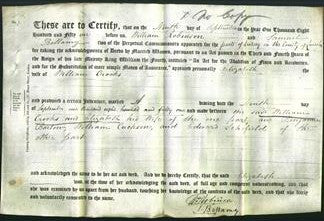 No Copy
These are to Certify, that on the Ninth day of September in the Year One Thousand Eight
Hundred and Fifty one before us William Robinson Samuel
Bellamy two of the Perpetual Commissioners appointed for the
for taking the Acknowledgments of Deeds by Married Women, pursuant to an Act passed in the Third and Fourth Years of the
Reign of his late Majesty King William the Fourth, intituled "An Act for the Abolition of Fines and Recoveries, and
for the substitution of more simple Modes of Assurance," appeared personally Elizabeth the
wife of William Crooks
and produced a certain Indenture, marked A bearing date the Ninth day of
September one thousand eight hundred and fifty one and made between the said William
Crooks and Elizabeth his Wife of the one part, and Benjamin
William and Edward of the
other part
and acknowledged the same to be her act and deed. And we do hereby Certify, that the said Elizabeth
was, at the time of her acknowledging the said deed, of full age and competent understanding, and that she
was examined by us apart from her husband, touching her knowledge of the contents of the said deed, and that she freely
and voluntarily consented to the same.
W Robinson
S Bellamy